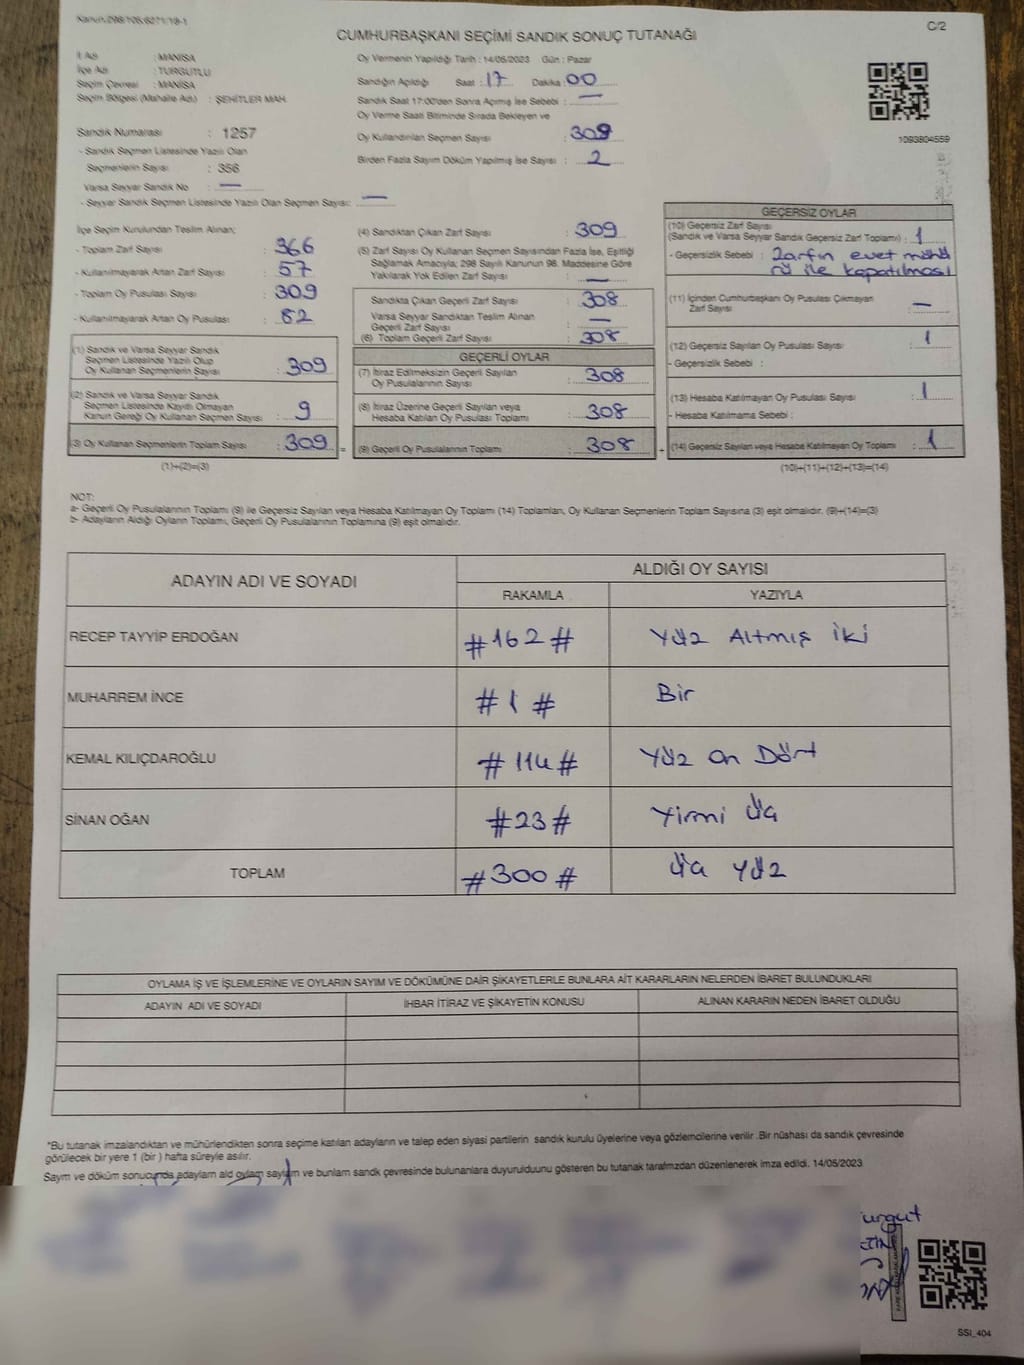 Kanun:298/106,6271/19-1
C/2
CUMHURBAŞKANI SEÇİMİ SANDIK SONUÇ TUTANAĞI
İl Adı : MANİSA
İlçe Adı : TURGUTLU
Seçim Çevresi : MANİSA
Seçim Bölgesi (Mahalle Adı) : ŞEHİTLER MAH.
Sandık Numarası : 1257
- Sandık Seçmen Listesinde Yazılı Olan
Seçmenlerin Sayısı : 356
Varsa Seyyar Sandık No : —
- Seyyar Sandık Seçmen Listesinde Yazılı Olan Seçmen Sayısı: —
Oy Vermenin Yapıldığı Tarih : 14/05/2023 Gün : Pazar
Sandığın Açıldığı Saat : 17 Dakika : 00
Sandık Saat 17:00'den Sonra Açılmış İse Sebebi : —
Oy Verme Saati Bitiminde Sırada Bekleyen ve
Oy Kullandırılan Seçmen Sayısı : 309
Birden Fazla Sayım Döküm Yapılmış İse Sayısı : 2
1093804559
İlçe Seçim Kurulundan Teslim Alınan;
- Toplam Zarf Sayısı : 366
- Kullanılmayarak Artan Zarf Sayısı : 57
- Toplam Oy Pusulası Sayısı : 309
- Kullanılmayarak Artan Oy Pusulası : 82
(1) Sandık ve Varsa Seyyar Sandık
Seçmen Listesinde Yazılı Olup
Oy Kullanan Seçmenlerin Sayısı : 309
(2) Sandık ve Varsa Seyyar Sandık
Seçmen Listesinde Kayıtlı Olmayan
Kanun Gereği Oy Kullanan Seçmen Sayısı : 9
(3) Oy Kullanan Seçmenlerin Toplam Sayısı : 309 =
(1)+(2)=(3)
(4) Sandıktan Çıkan Zarf Sayısı : 309
(5) Zarf Sayısı Oy Kullanan Seçmen Sayısından Fazla İse, Eşitliği
Sağlamak Amacıyla; 298 Sayılı Kanunun 98. Maddesine Göre
Yakılarak Yok Edilen Zarf Sayısı : —
Sandıkta Çıkan Geçerli Zarf Sayısı : 308
Varsa Seyyar Sandıktan Teslim Alınan
Geçerli Zarf Sayısı : —
(6) Toplam Geçerli Zarf Sayısı : 308
GEÇERLİ OYLAR
(7) İtiraz Edilmeksizin Geçerli Sayılan
Oy Pusulalarının Sayısı : 308
(8) İtiraz Üzerine Geçerli Sayılan veya
Hesaba Katılan Oy Pusulası Toplamı : 308
(9) Geçerli Oy Pusulalarının Toplamı : 308 +
GEÇERSİZ OYLAR
(10) Geçersiz Zarf Sayısı
(Sandık ve Varsa Seyyar Sandık Geçersiz Zarf Toplamı) : 1
- Geçersizlik Sebebi : Zarfın evet mühü
rü ile kapatılması
(11) İçinden Cumhurbaşkanı Oy Pusulası Çıkmayan
Zarf Sayısı : —
(12) Geçersiz Sayılan Oy Pusulası Sayısı : 1
- Geçersizlik Sebebi :
(13) Hesaba Katılmayan Oy Pusulası Sayısı : 1
- Hesaba Katılmama Sebebi :
(14) Geçersiz Sayılan veya Hesaba Katılmayan Oy Toplamı : 1
(10)+(11)+(12)+(13)=(14)
NOT:
a- Geçerli Oy Pusulalarının Toplamı (9) ile Geçersiz Sayılan veya Hesaba Katılmayan Oy Toplamı (14) Toplamları, Oy Kullanan Seçmenlerin Toplam Sayısına (3) eşit olmalıdır. (9)+(14)=(3)
b- Adayların Aldığı Oyların Toplamı, Geçerli Oy Pusulalarının Toplamına (9) eşit olmalıdır.
ADAYIN ADI VE SOYADI
ALDIĞI OY SAYISI
RAKAMLA YAZIYLA
RECEP TAYYİP ERDOĞAN #162# Yüz Altmış İki
MUHARREM İNCE #1# Bir
KEMAL KILIÇDAROĞLU #114# Yüz On Dört
SİNAN OĞAN #23# Yirmi Üç
TOPLAM #300# Üç Yüz
OYLAMA İŞ VE İŞLEMLERİNE VE OYLARIN SAYIM VE DÖKÜMÜNE DAİR ŞİKAYETLERLE BUNLARA AİT KARARLARIN NELERDEN İBARET BULUNDUKLARI
ADAYIN ADI VE SOYADI İHBAR İTİRAZ VE ŞİKAYETİN KONUSU ALINAN KARARIN NEDEN İBARET OLDUĞU
*Bu tutanak imzalandıktan ve mühürlendikten sonra seçime katılan adayların ve talep eden siyasi partilerin sandık kurulu üyelerine veya gözlemcilerine verilir. Bir nüshası da sandık çevresinde
görülecek bir yere 1 (bir ) hafta süreyle asılır.
Sayım ve döküm sonucunda adayların aldı oyların sayları ve bunların sandk çevresinde bulunanlara duyurulduunu gösteren bu tutanak tarafmzdan düzenlenerek imza edildi. 14/05/2023
urgut
SSI_404